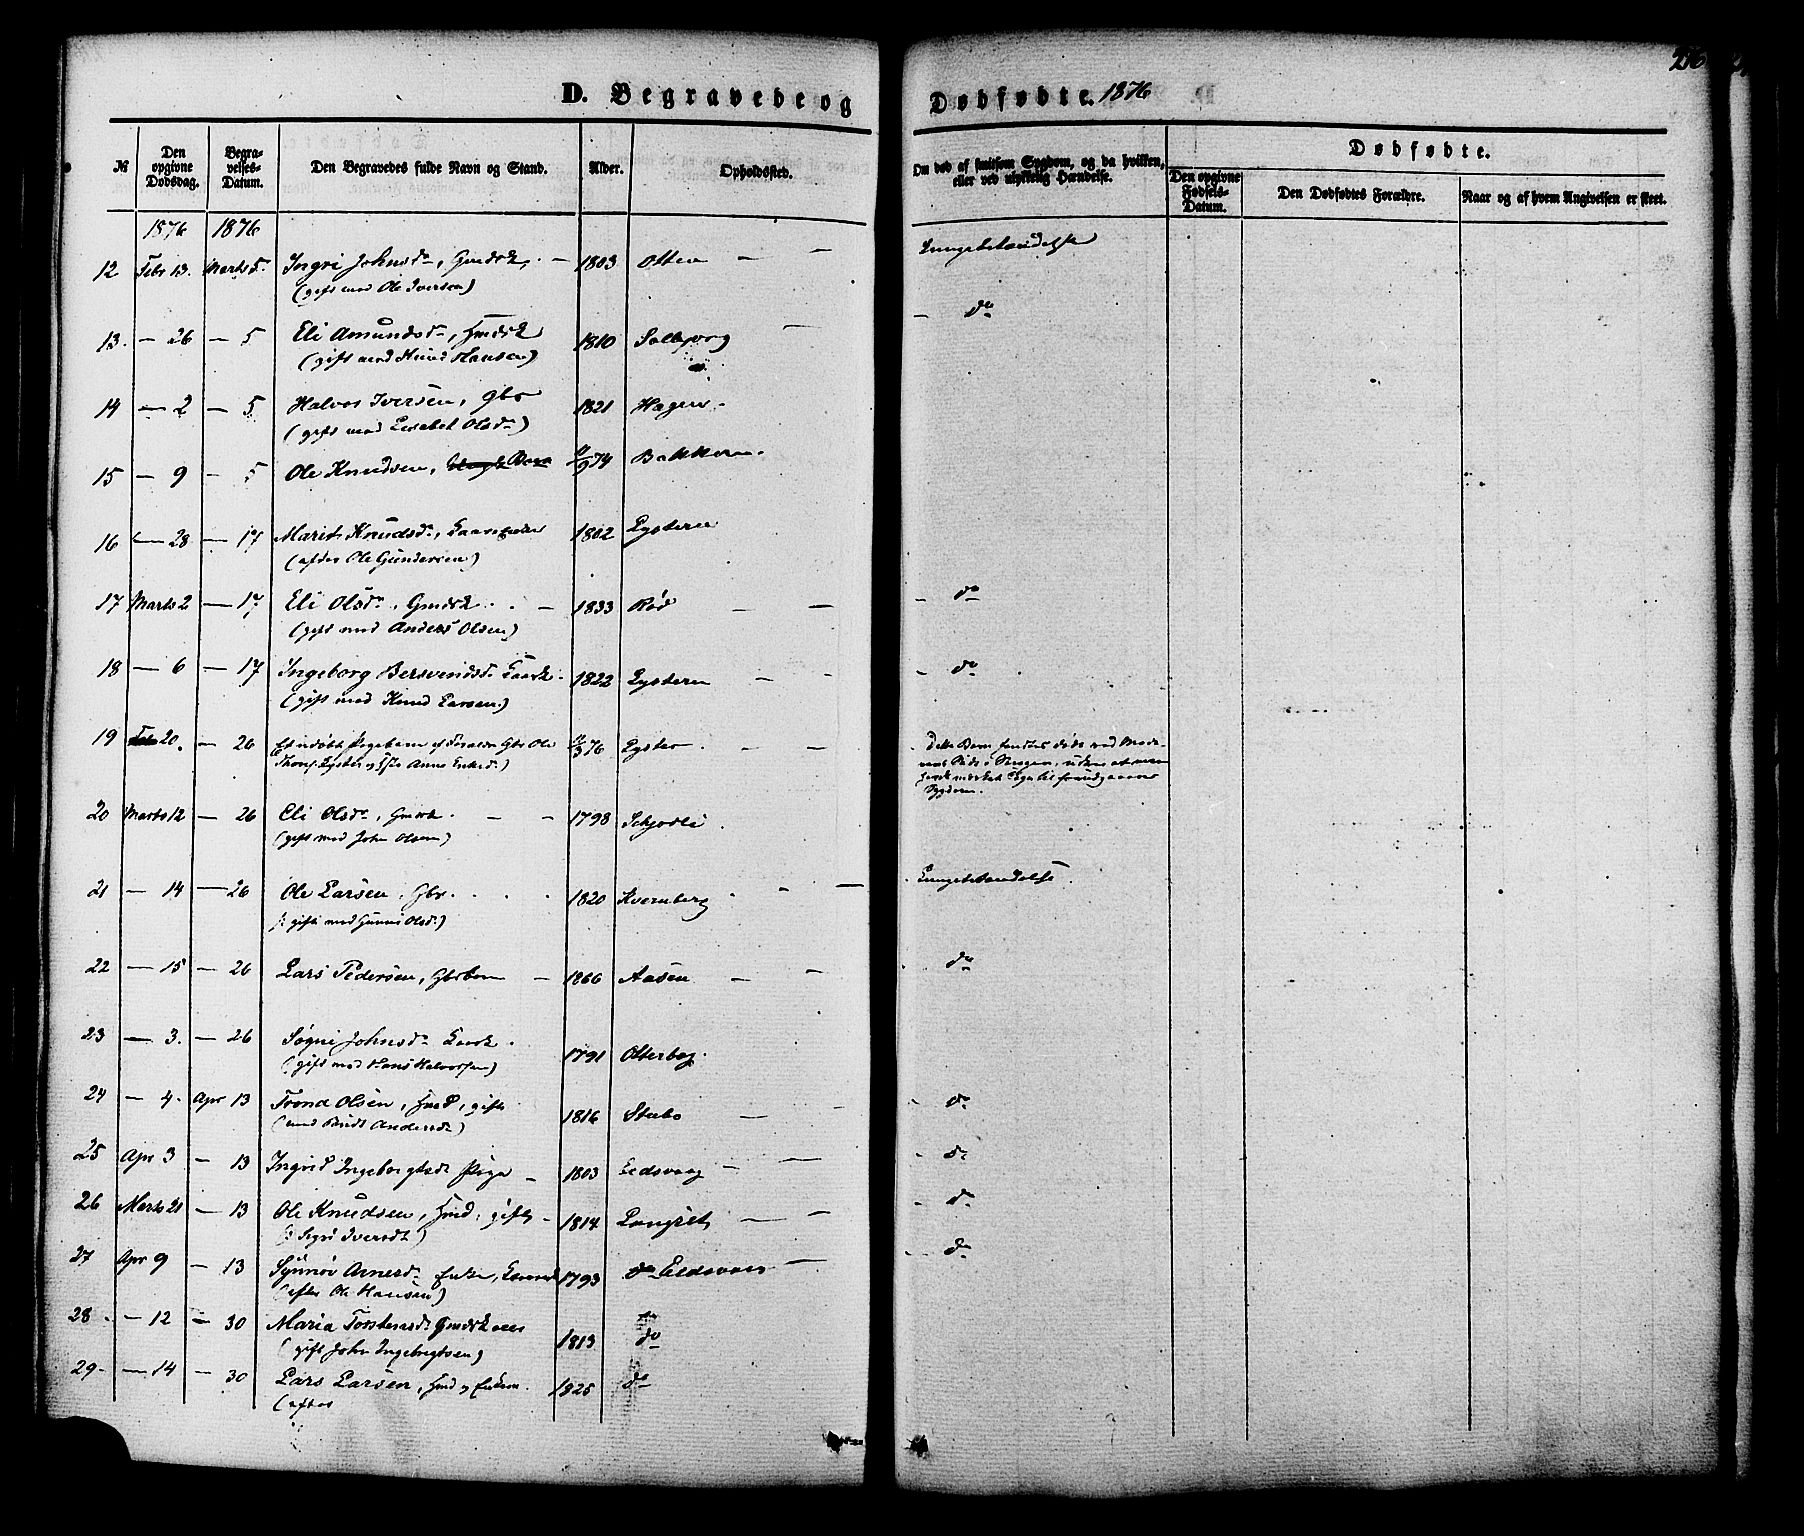 216
D. Begravede og Dødfødte. 1876
№
Den opgivne Dødsdag.
Begravelses-Datum.
Den Begravedes fulde Navn og Stand.
Alder.
Opholdssted.
Om død af smitsom Sygdom, og da hvilken, eller ved ulykkelig Hændelse.
Dødfødte.
Den opgivne Fødsels-Datum.
Den Dødfødtes Forældre.
Naar og af hvem Angivelsen er skeet.
1876 1876
12 Febr 13. Marts 5. Ingri Johnsdr, Gmdsk. — 1803 Otten — — Lungebetændelse
(gift med Ole Iversen)
13. — 26 — 5 Eli Amundsdr, Hmdsk 1810 Solbjorg — — do
(gift med Knud Hansen)
14 — 2 — 5 Halvor Iversen, Gbr 1821 Hagen.
(gift med Lisabet Olsdr)
15 — 9 — 5 Ole Knudsen, Barn 74 Bakken.
16 — 28 — 17 Marit Knudsdr, 1802 Lysteren
(efter Ole Gundersen)
17 Marts 2 — 17 Eli Olsdr, Gmdsk. — 1833 Rød — — — do
(gift med Anders Olsen)
18 — 6 — 17 Ingeborg Bersvendsdr 1822 Lysteren — — — do
(gift med Knud Larsen.)
19 20. — 26 Et udøbt Pigebarn af Forældre Gbr Ole 76 Lyster. — — Dette Barn fandtes død ved Mode-
Thors. Lyster og Hstr Anne Eriksdr) rens Side i Sengen, uden at man
Sygdom.
20 Marts 12 — 26 Eli Olsdr, Gmdsk. — — 1798 Schjødli
(gift med John Olsen)
21 — 14 — 26 Ole Larsen, Gbr. 1820 Kvernberg. — — Lungebetændelse.
(: gift med Gunni Olsdr)
22 — 15 — 26 Lars Pedersen, Gbrbarn — 1866 Aasen — — do
23 — 3. — 26 Søgni Johnsdr 1791 Otterbog.
(gift med Hans Halvorsen)
24 — 4. Apr 13 Trond Olsen, Hmd, gift 1816 Stubø — — do
(med Andersdr)
25 Apr 3 — 13 Ingrid Ingeborgtsdr Pige — 1803 Eidsvaag — — — do
26 Marts 21 — 13 Ole Knudsen, Hmd, gift — 1814. Langset — — — do
(: Sigri Iversdr)
27 Apr 9 — 13 Synnøv Arnesdr Enke, 1793 do Eidsvaag — — do
(efter Ole Hansen)
28. — 12 — 30 Maria Torstensdr Gmdsk 1813 do
(gift John Ingebrigtsen)
29- — 14 — 30 Lars Larsen, Hmd og Enkem. 1825 do
(efter